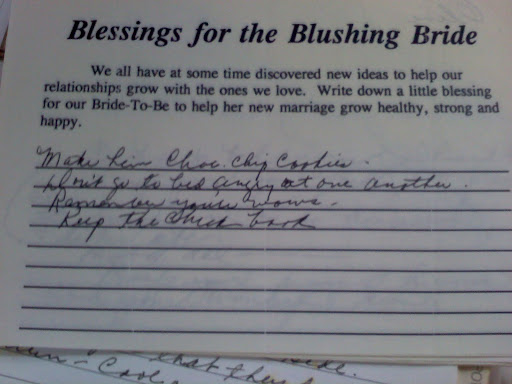 Blessings for the Blushing Bride
We all have at some time discovered new ideas to help our
relationships grow with the ones we love. Write down a little blessing
for our Bride-To-Be to help her new marriage grow healthy, strong and
happy.
Make him Choc. Chip Cookies.
Don't go to bed angry at one another.
Remember you're vows.
Keep the Check book
that they
Cool